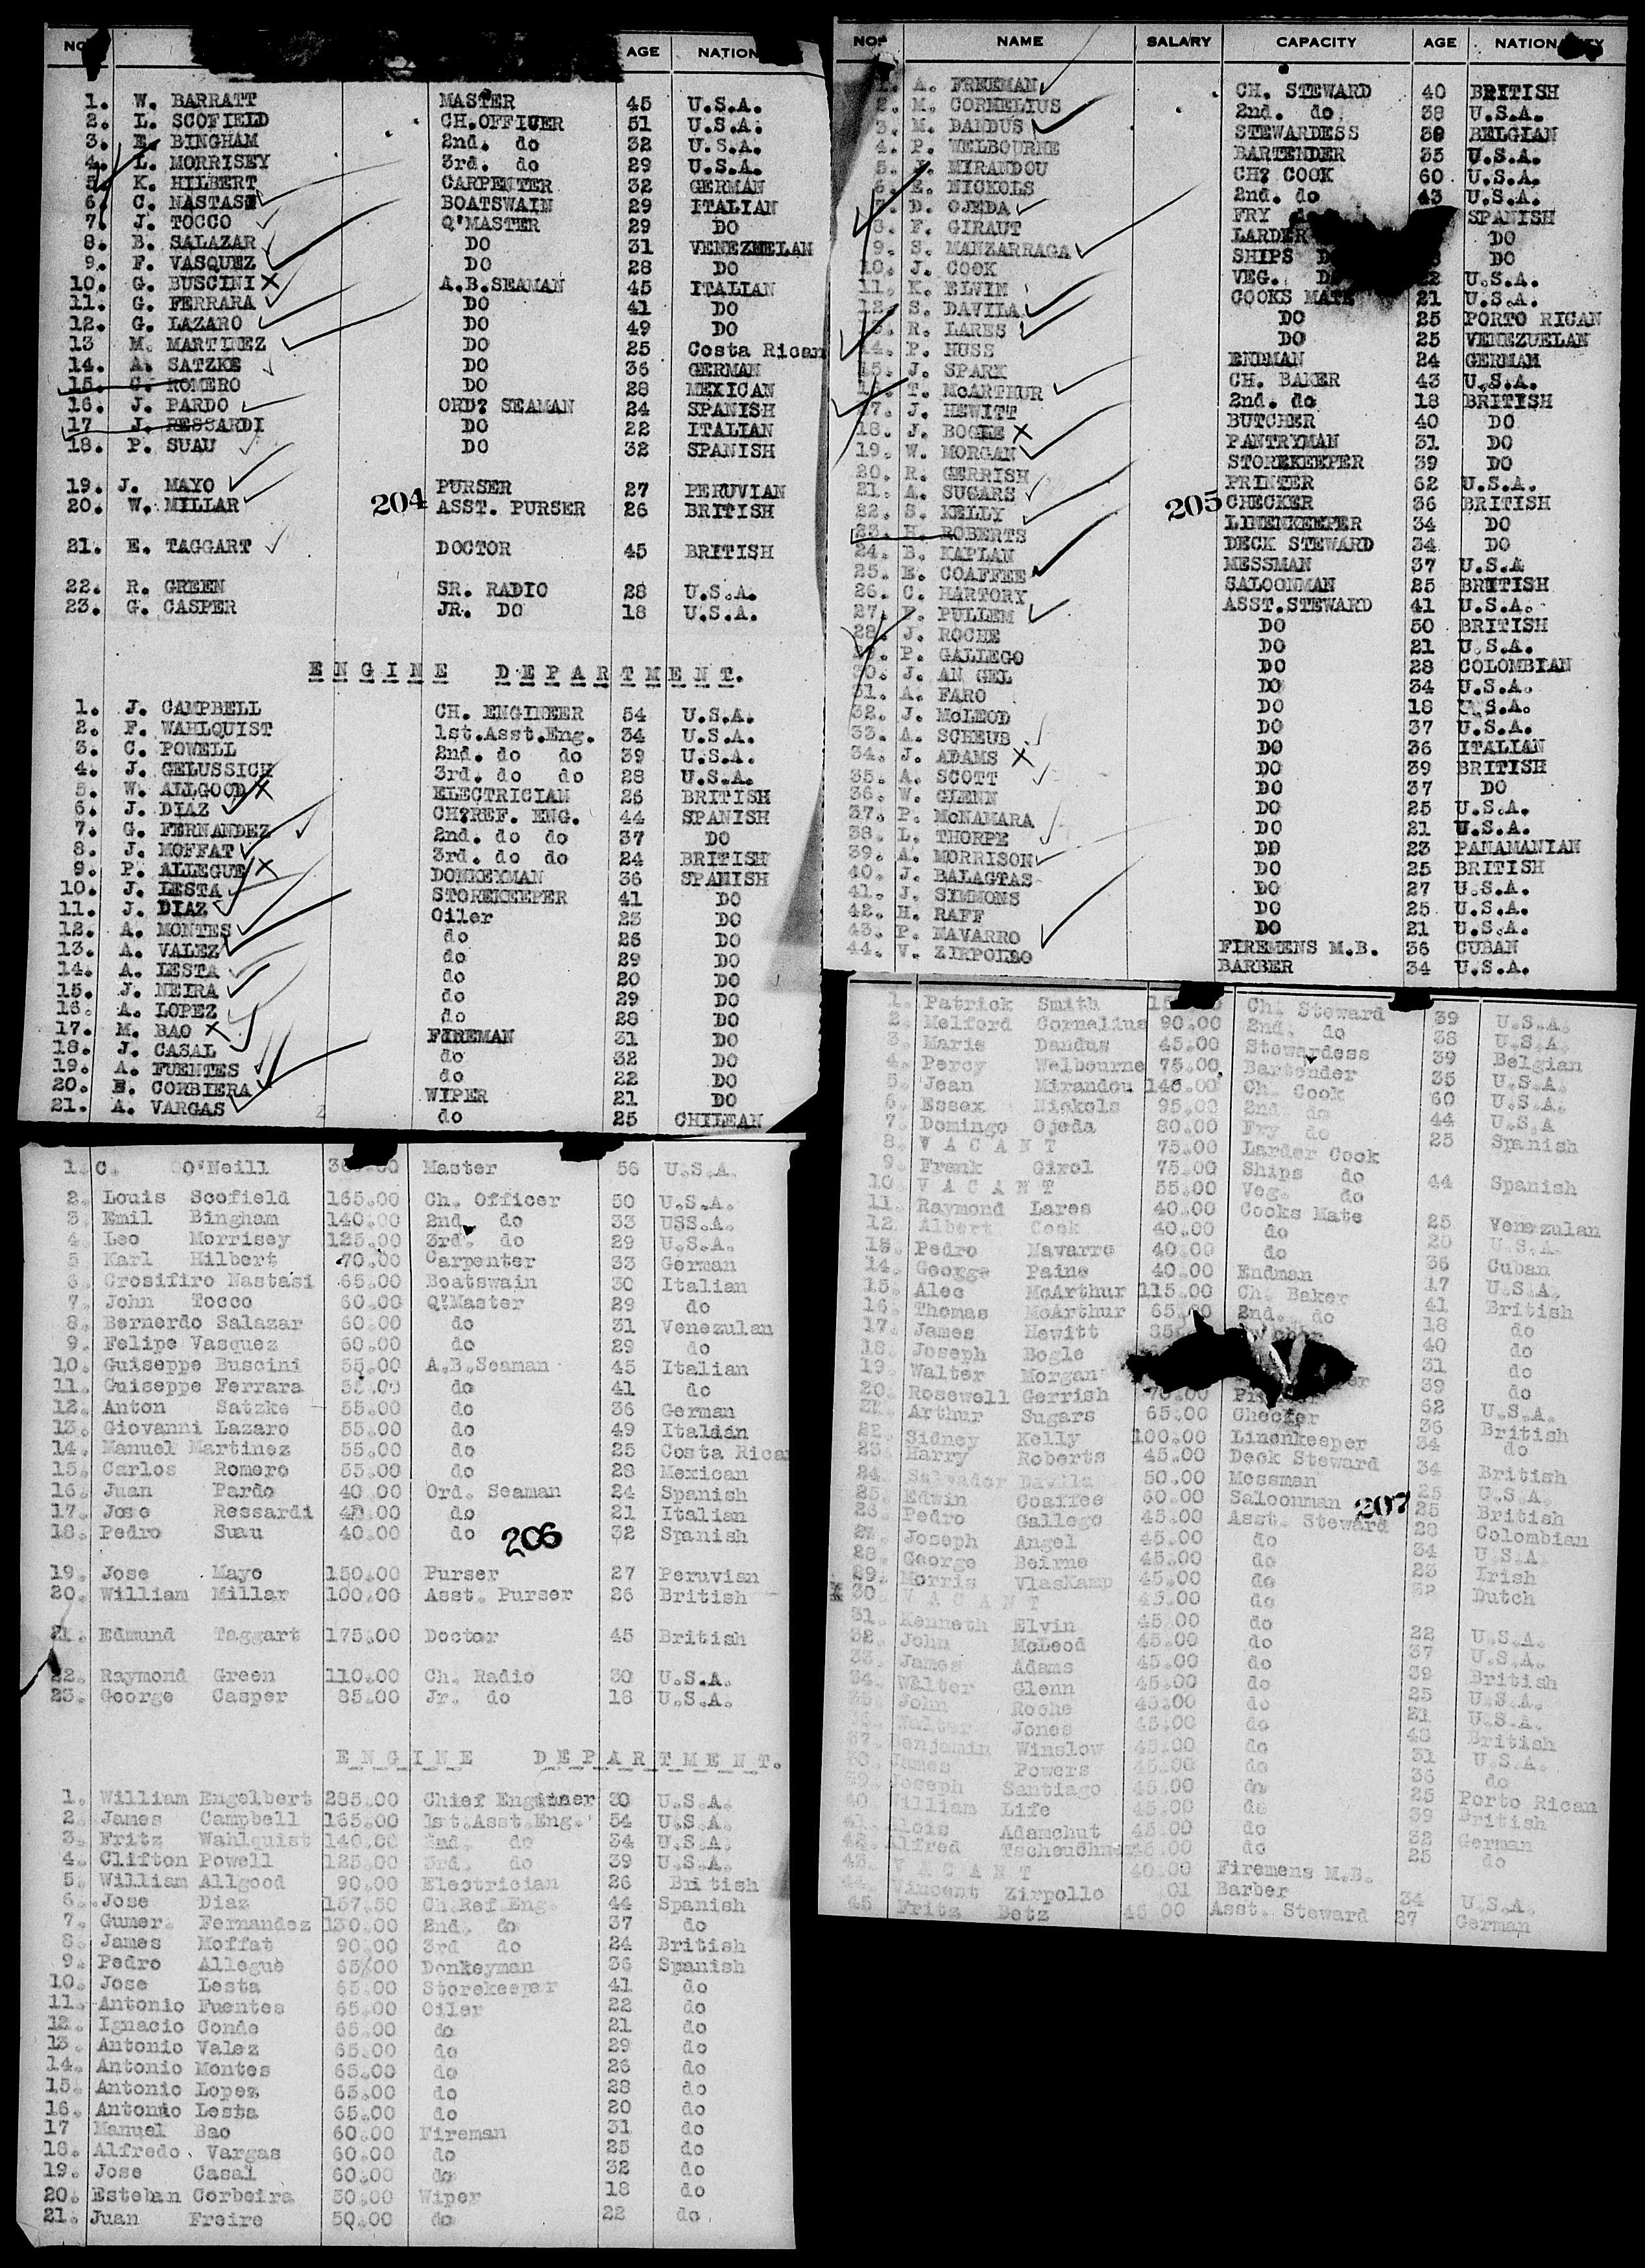 NO. AGE NATION
1. W. BARRATT MASTER 45 U.S.A.
2. L. SCOFIELD CH.OFFICER 51 U.S.A.
3. E. BINGHAM 2nd. do 32 U.S.A.
4. L. MORRISEY 3rd. do 29 U.S.A.
5. K. HILBERT CARPENTER 32 GERMAN
6. C. NASTASI BOATSWAIN 29 ITALIAN
7. J. TOCCO Q'MASTER 29 DO
8. B. SALAZAR DO 31 VENEZUELAN
9. F. VASQUEZ DO 28 DO
10. G. BUSCINI X A.B.SEAMAN 45 ITALIAN
11. G. FERRARA DO 41 DO
12. G. LAZARO DO 49 DO
13 M. MARTINEZ DO 25 Costa Rican
14. A. SATZKE DO 36 GERMAN
15. C. ROMERO DO 28 MEXICAN
16. J. PARDO ORD? SEAMAN 24 SPANISH
17 J. RESSARDI DO 22 ITALIAN
18. P. SUAU DO 32 SPANISH
19. J. MAYO PURSER 27 PERUVIAN
20. W. MILLAR 204 ASST. PURSER 26 BRITISH
21. E. TAGGART DOCTOR 45 BRITISH
22. R. GREEN SR. RADIO 28 U.S.A.
23. G. CASPER JR. DO 18 U.S.A.
ENGINE DEPARTMENT.
1. J. CAMPBELL CH. ENGINEER 54 U.S.A.
2. F. WAHLQUIST 1st.Asst.Eng. 34 U.S.A.
3. C. POWELL 2nd. do do 39 U.S.A.
4. J. GELUSSICH 3rd. do do 28 U.S.A.
5. W. ALLGOOD X ELECTRICIAN 26 BRITISH
6. J. DIAZ CH?REF. ENG. 44 SPANISH
7. G. FERNANDEZ 2nd. do do 37 DO
8. J. MOFFAT 3rd. do do 24 BRITISH
9. P. ALLEGUE X DONKEYMAN 36 SPANISH
10. J. LESTA STOREKEEPER 41 DO
11. J. DIAZ Oiler 23 DO
12. A. MONTES do 26 DO
13. A. VALEZ do 29 DO
14. A. LESTA do 20 DO
15. J. NEIRA do 29 DO
16. A. LOPEZ do 28 DO
17. M. BAO X FIREMAN 31 DO
18. J. CASAL do 32 DO
19. A. FUENTES do 22 DO
20. E. CORBIERA WIPER 21 DO
21. A. VARGAS do 25 CHILEAN
NO. NAME SALARY CAPACITY AGE NATIONALITY
1. A. FREEMAN CH. STEWARD 40 BRITISH
2. M. CORNELIUS 2nd. do. 38 U.S.A.
3. M. DANDUS STEWARDESS 39 BELGIAN
4. P. WELBOURNE BARTENDER 35 U.S.A.
5. J. MIRANDOU CH? COOK 60 U.S.A.
6. E. NICKOLS 2nd. do 43 U.S.A.
7. D. OJEDA FRY SPANISH
8. F. GIRAUT LARDER DO
9. S. MANZARRAGA SHIPS DO
10. J. COOK VEG. 22 U.S.A.
11. K. ELVIN COOKS MATE 21 U.S.A.
12. S. DAVILA DO 25 PORTO RICAN
13. R. LARES DO 25 VENEZUELAN
14. P. HUSS ENDMAN 24 GERMAN
15. J. SPARK CH. BAKER 43 U.S.A.
16. T. McARTHUR 2nd. do 18 BRITISH
17. J. HEWITT BUTCHER 40 DO
18. J. BOGLE X PANTRYMAN 31 DO
19. W. MORGAN STOREKEEPER 39 DO
20. R. GERRISH PRINTER 62 U.S.A.
21. A. SUGARS 205 CHECKER 36 BRITISH
22. S. KELLY LINENKEEPER 34 DO
23. H. ROBERTS DECK STEWARD 34 DO
24. B. KAPLAN MESSMAN 37 U.S.A
25. E. COAFFEE SALOONMAN 25 BRITISH
26. C. HARTORY ASST.STEWARD 41 U.S.A.
27. F. PULLEM DO 50 BRITISH
28. J. ROCHE DO 21 U.S.A.
29. P. GALLEGO DO 28 COLOMBIAN
30. J. AN GEL DO 34 U.S.A.
31. A. FARO DO 18 U.S.A.
32. J. McLEOD DO 37 U.S.A.
33. A. SCHEUB DO 36 ITALIAN
34. J. ADAMS X DO 39 BRITISH
35. A. SCOTT DO 37 DO
36. W. GLENN DO 25 U.S.A.
37. P. McNAMARA DO 21 U.S.A.
38. L. THORPE DO 23 PANAMANIAN
39. A. MORRISON DO 25 BRITISH
40. J. BALAGTAS DO 27 U.S.A.
41. J. SIMMONS DO 25 U.S.A.
42. H. RAFF DO 21 U.S.A.
43. P. NAVARRO FIREMENS M.B. 36 CUBAN
44. V. ZIRPOLLO BARBER 34 U.S.A.
1. C. O'Neill Master 56 U.S.A.
2. Louis Scofield 165.00 Ch. Officer 50 U.S.A.
3. Emil Bingham 140.00 2nd. do 33 USS.A.
4. Leo Morrisey 125.00 3rd. do 29 U.S.A.
5 Karl Hilbert 70.00 Carpenter 33 German
6. Crosifiro Nastasi 65.00 Boatswain 30 Italian
7. John Tocco 60.00 Q'Master 29 do
8. Bernardo Salazar 60.00 do 31 Venezulan
9. Felipe Vasquez 60.00 do 29 do
10. Guiseppe Buscini 55.00 A.B.Seaman 45 Italian
11. Guiseppe Ferrara 55.00 do 41 do
12. Anton Satzke 55.00 do 36 German
13. Giovanni Lazaro 55.00 do 49 Italian
14. Manuel Martinez 55.00 do 25 Costa Rica
15. Carlos Romero 55.00 do 28 Mexican
16. Juan Pardo 40.00 Ord. Seaman 24 Spanish
17. Jose Ressardi 40.00 do 21 Italian
18. Pedro Suau 40.00 do 206 32 Spanish
19. Jose Mayo 150.00 Purser 27 Peruvian
20. William Millar 100.00 Asst. Purser 26 British
21. Edmund Taggart 175.00 Doctor 45 British
22. Raymond Green 110.00 Ch. Radio 30 U.S.A.
23. George Casper 85.00 Jr. do 18 U.S.A.
ENGINE DEPARTMENT.
1. William Engelbert 285.00 Chief Engineer 30 U.S.A.
2. James Campbell 165.00 1st.Asst.Eng. 54 U.S.A.
3. Fritz Wahlquist 140.00 2nd. do 34 U.S.A.
4. Clifton Powell 125.00 3rd. do 39 U.S.A.
5. William Allgood 90.00 Electrician 26 British
6. Jose Diaz 157.50 Ch.Ref Eng. 44 Spanish
7. Gumer. Fernandez 130.00 2nd. do 37 do
8. James Moffat 90.00 3rd do 24 British
9. Pedro Allegue 65.00 Donkeyman 36 Spanish
10. Jose Lesta 65.00 Storekeeper 41 do
11. Antonio Fuentes 65.00 Oiler 22 do
12. Ignacio Conde 65.00 do 21 do
13. Antonio Valez 65.00 do 29 do
14. Antonio Montes 65.00 do 26 do
15. Antonio Lopez 65.00 do 28 do
16. Antonio Lesta 65.00 do 20 do
17 Manuel Bao 60.00 Fireman 31 do
18. Alfredo Vargas 60.00 do 25 do
19. Jose Casal 60.00 do 32 do
20. Esteban Corbeira 50.00 Wiper 18 do
21. Juan Freire 50.00 do 22 do
1. Patrick Smith Ch. Steward 39 U.S.A.
2. Melford Cornelius 90.00 2nd. do 38 U.S.A.
3. Marie Dandus 45.00 Stewardess 39 Belgian
4. Percy Welbourne 75.00 Bartender 35 U.S.A.
5. Jean Mirandou 145.00 Ch. Cook 60 U.S.A.
6. Essex Nickols 95.00 2nd. do 44 U.S.A
7. Domingo Ojeda 80.00 Fry do 25 Spanish
8. VACANT 75.00 Larder Cook
9. Frank Girol 75.00 Ships do 44 Spanish
10. VACANT 55.00 Veg. do
11. Raymond Lares 40.00 Cooks Mate 25 Venezulan
12. Albert Cook 40.00 do 20 U.S.A.
13. Pedro Navarro 40.00 do 36 Cuban
14. George Paine 40.00 Endman 17 U.S.A.
15. Alec McArthur 115.00 Ch. Baker 41 British
16. Thomas McArthur 65.00 2nd. do 18 do
17. James Hewitt 40 do
18. Joseph Bogle 31 do
19. Walter Morgan 39 do
20. Rosewell Gerrish 70.00 62 U.S.A.
21. Arthur Sugars 65.00 Checker 36 British
22. Sidney Kelly 100.00 Linenkeeper 34 do
23. Harry Roberts 45.00 Deck Steward 34 British
24. Salvador Davilla 50.00 Messman 25 U.S.A.
25. Edwin Coaffee 60.00 Saloonman 207 25 British
26. Pedro Gallego 45.00 Asst. Steward 28 Colombian
27. Joseph Angel 45.00 do 34 U.S.A.
28. George Beirne 45.00 do 23 Irish
29. Morris VlasKamp 45.00 do 32 Dutch
30. VACANT 45.00 do
31. Kenneth Elvin 45.00 do 22 U.S.A.
32. John McLeod 45.00 do 37 U.S.A.
33. James Adams 45.00 do 39 British
34. Walter Glenn 45.00 do 25 U.S.A.
35. John Roche 45.00 do 21 U.S.A.
36. Walter Jones 45.00 do 48 British
37. Benjamin Winslow 45.00 do 31 U.S.A.
38. James Powers 45.00 do 36 do
39. Joseph Santiago 45.00 do 25 Porto Rican
40 William Life 45.00 do 39 British
41. Alois Adamchut 45.00 do 32 German
42. Alfred 45.00 do 25 do
43. VACANT 40.00 Firemens M.B.
44. Vincent Zirpollo .01 Barber 34 U.S.A.
45 Fritz Betz 45 00 Asst. Steward 27 German